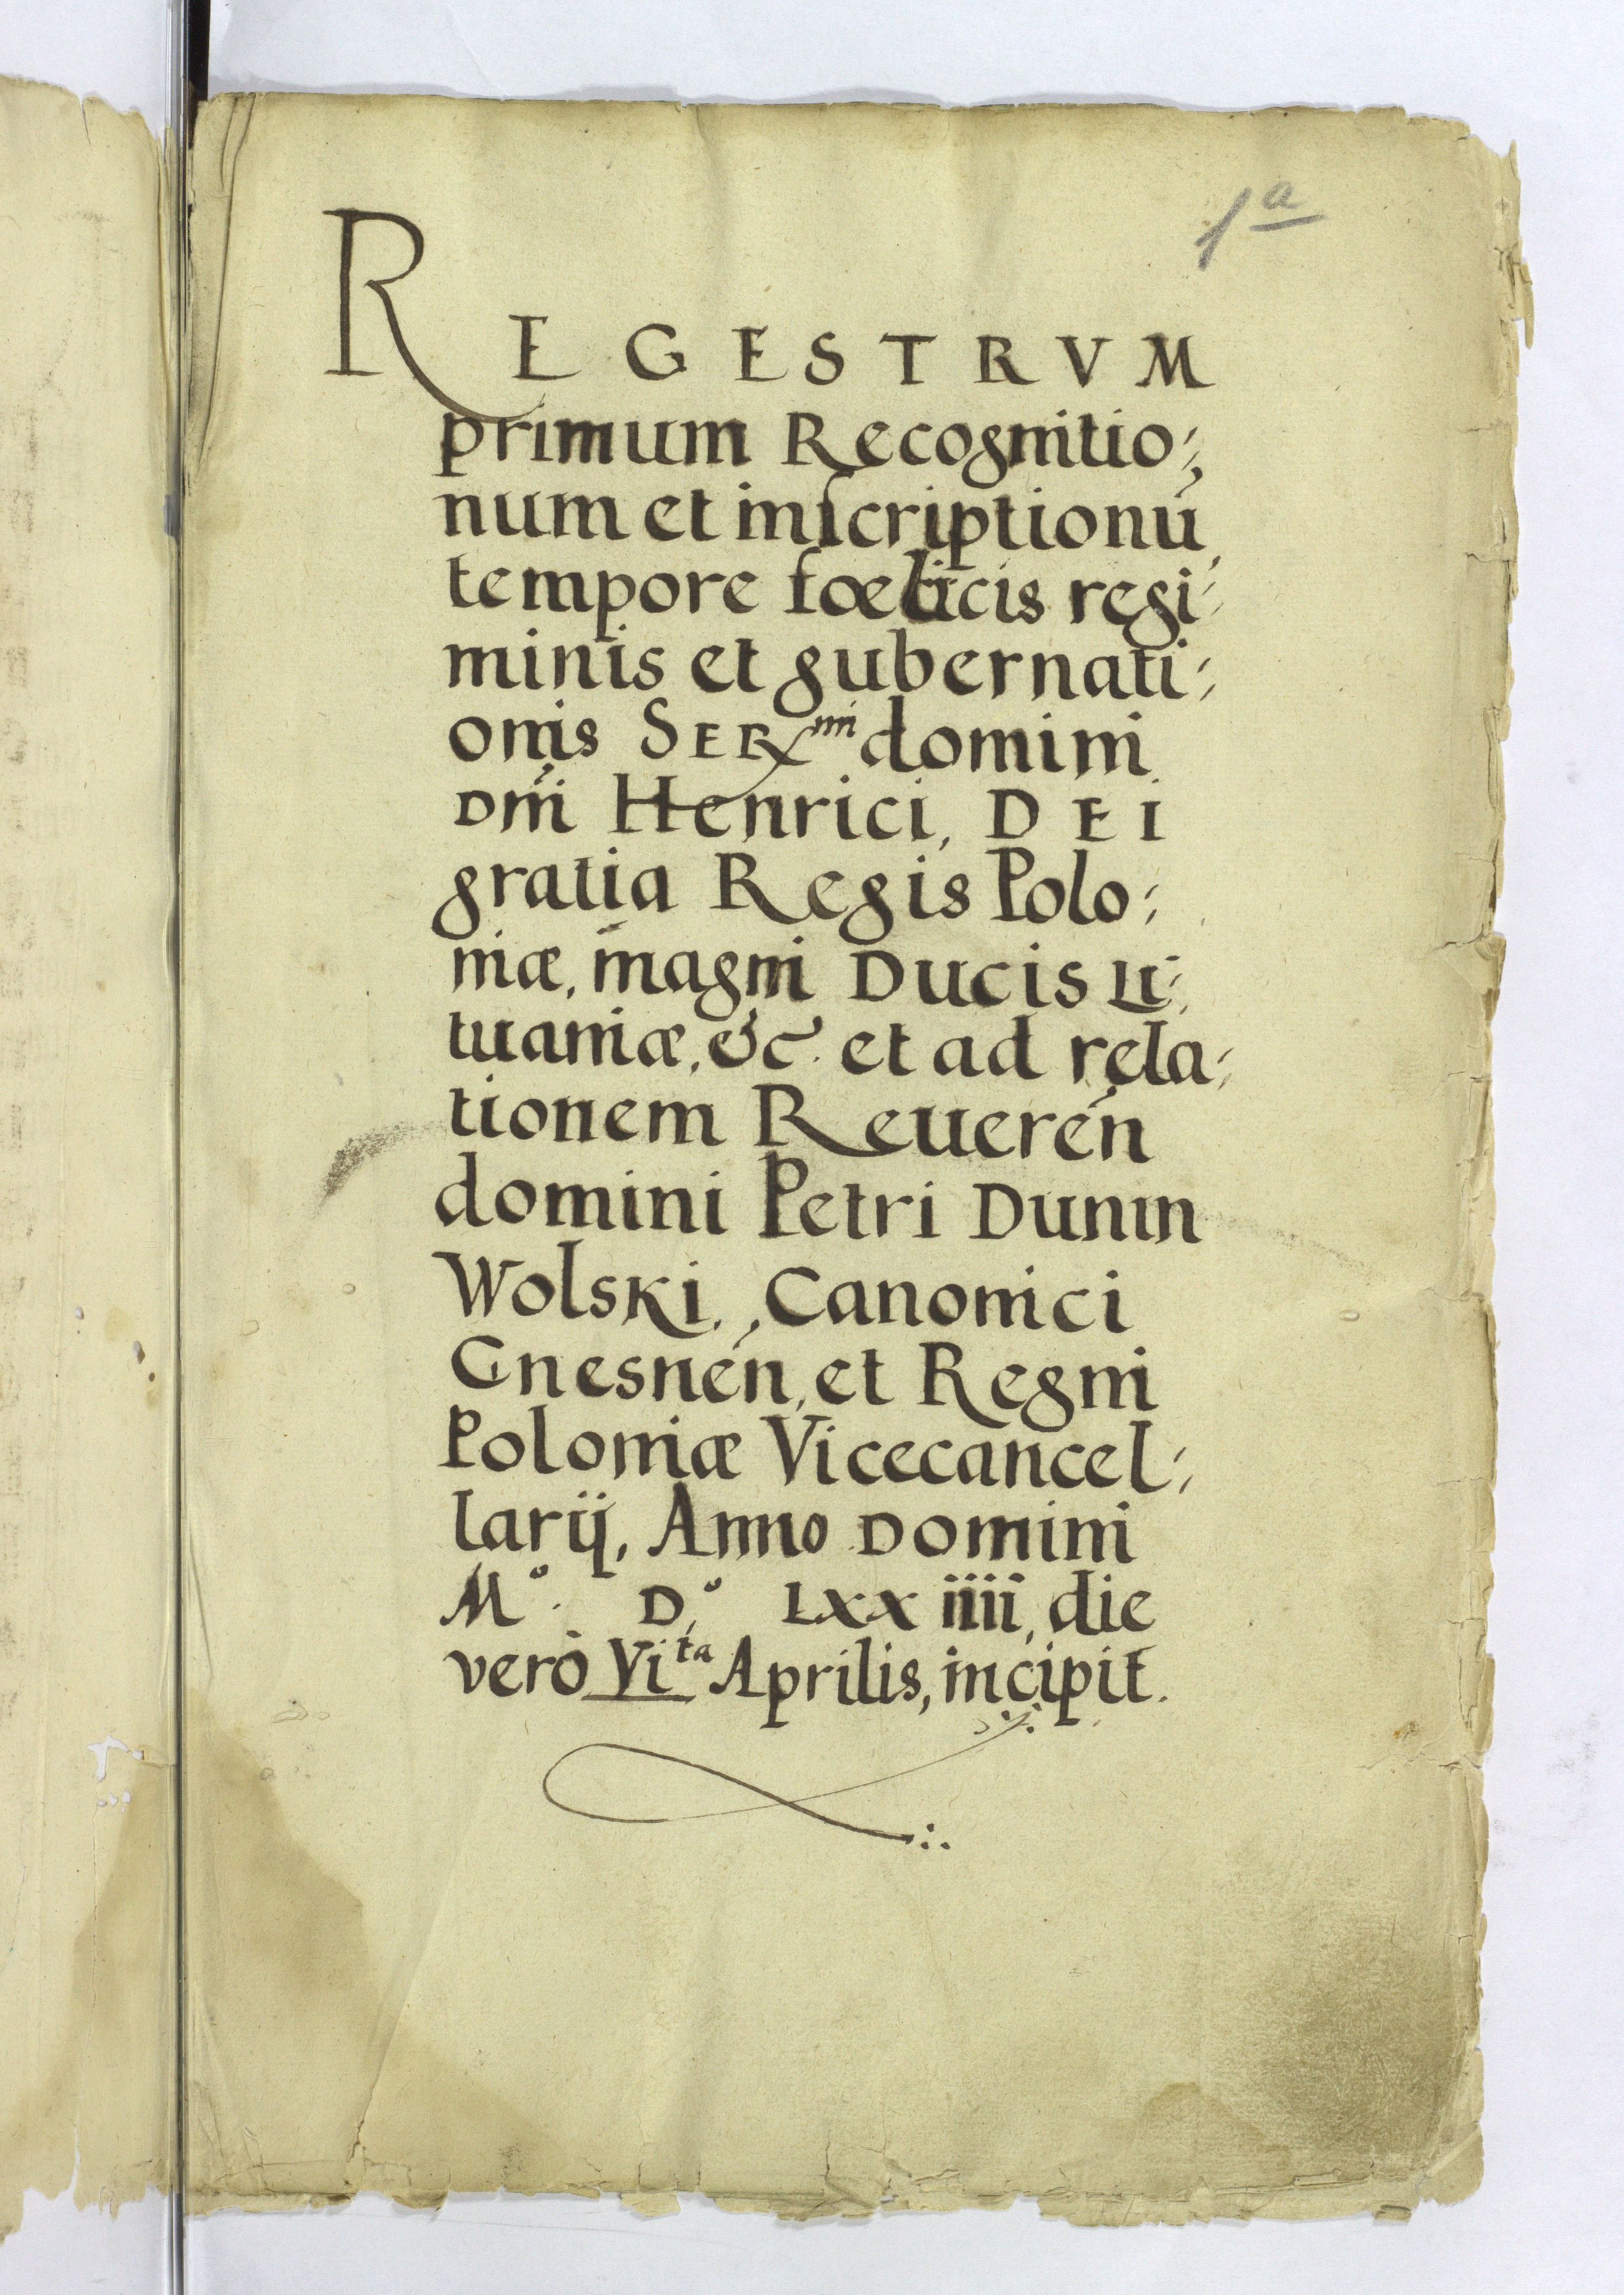 1a
REGESTRVM
primum Recognitio:
num et inſcriptionũ
tempore fœlicis regi:
minis et gubernati:
onis SERmi domini
Dñi Henrici, DEI
gratia Regis Polo:
niæ, magni Ducis Li:
tuaniæ, &c. et ad rela:
tionem Reueren̄
domini Petri Dunin
Wolski, Canonici
Gnesnen̄, et Regni
Poloniæ Vicecancel:
larij, Anno Domini
Mº. D.º LXX iiii, die
verò Vita Aprilis, incipit.